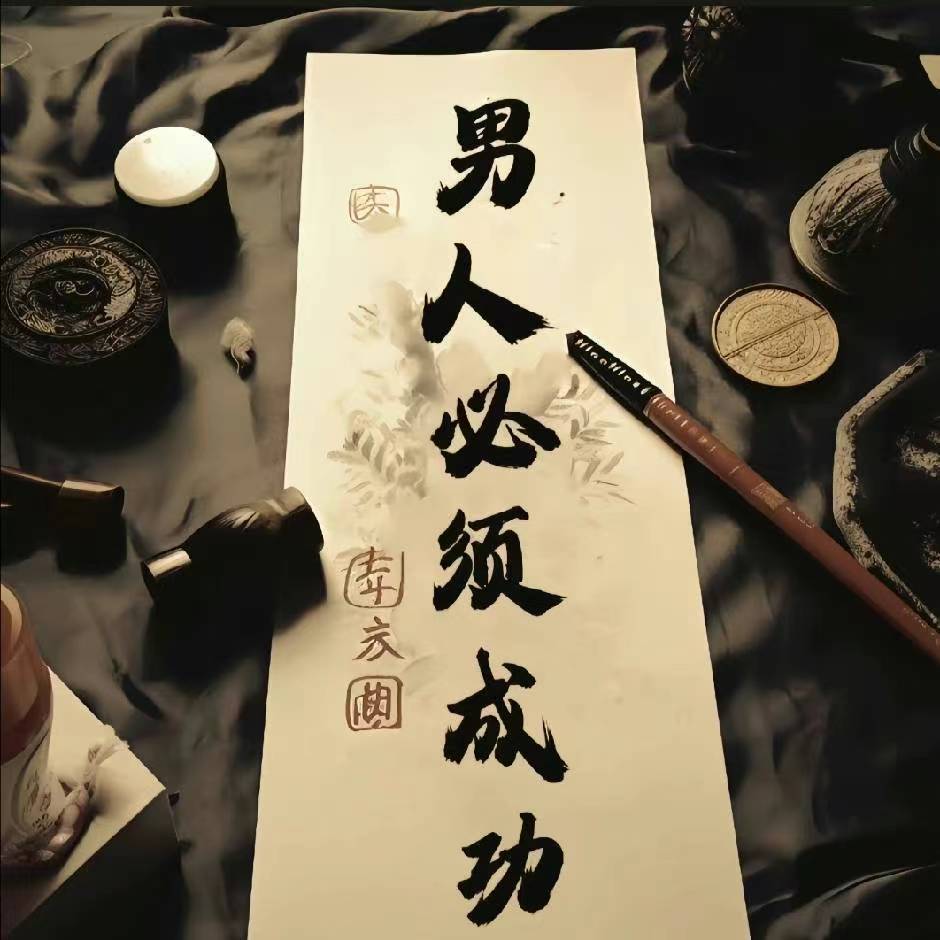 男人必须成功